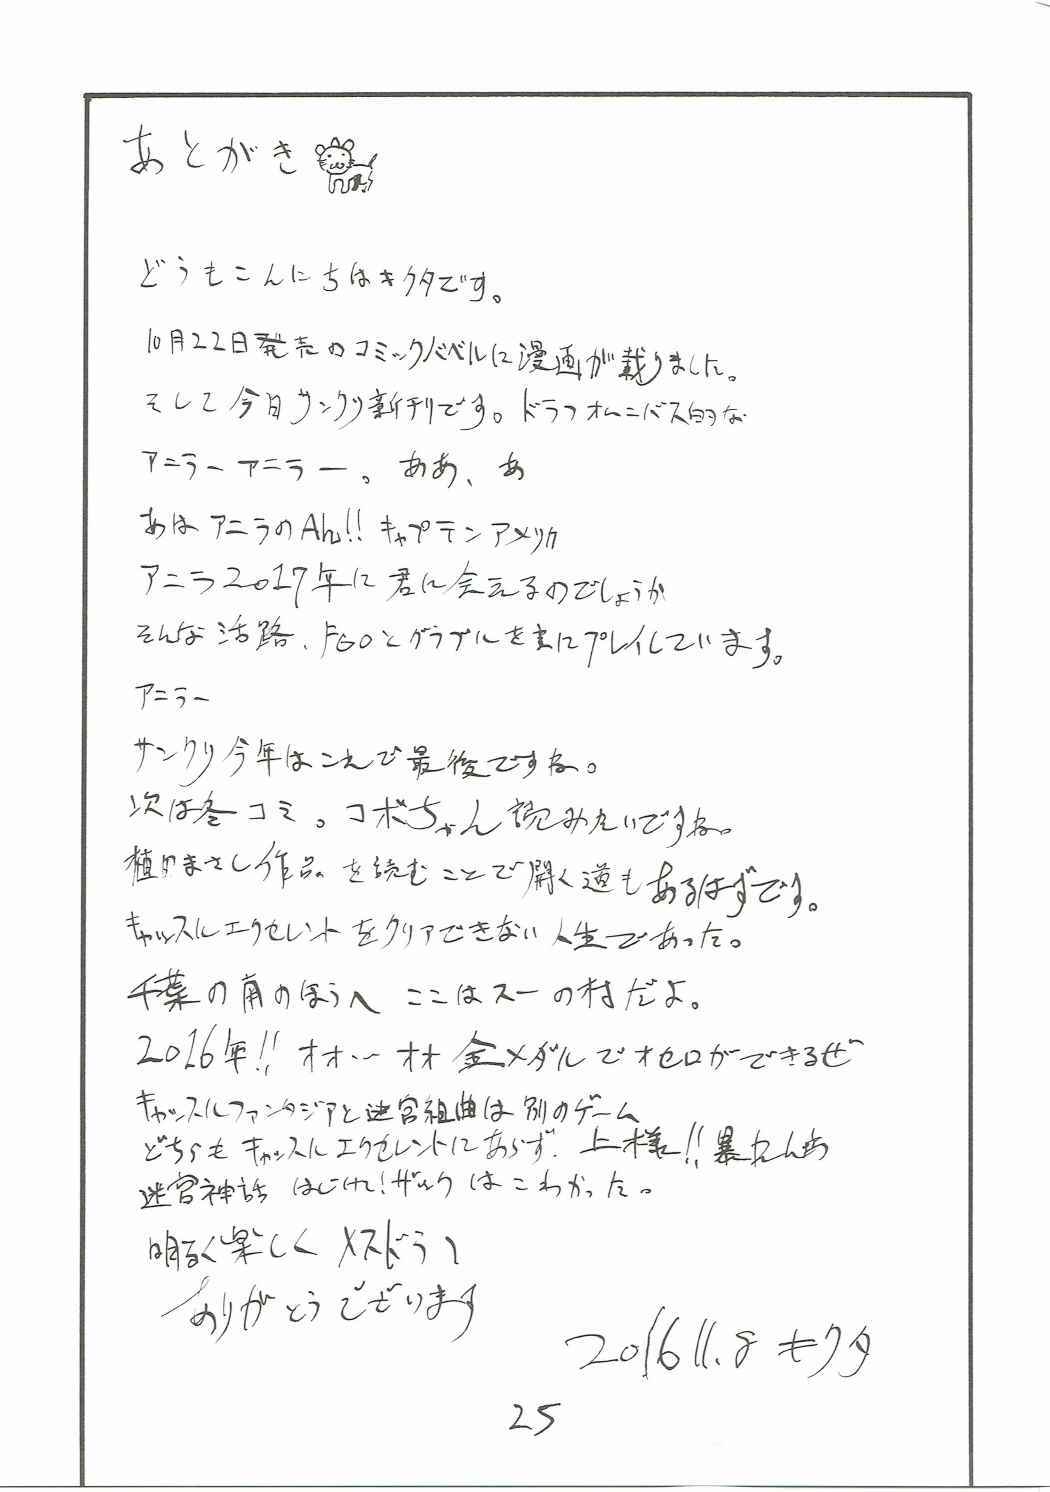 あとがき
どうもこんにちはキクタです。
10月22日発売のコミックバベルに漫画が載りました。
そして今日サンクリ新刊です。ドラフオムニバス的な
アニラーアニラー。ああ、あ
あはアニラのAh!!キャプテンアメリカ
アニラ2017年に君に会えるのでしょうか
そんな活路、FGOとグラブルを主にプレイしています。
アニラー
サンクリ今年はこれで最後ですね。
次は冬コミ。コボちゃん読みたいですね。
植田まさし作品を読むことで開く道もあるはずです。
キャッスルエクセレントをクリアできない人生であった。
千葉の南のほうへ ここはスーの村だよ。
2016年!! オオ…オオ 金メダルでオセロができるぜ
キャッスルファンタジアと迷宮組曲は別のゲーム
どちらもキャッスルエクセレントにあらず。上様!!暴れんぼ
迷宮神話 はじけ!ザックはこわかった。
明るく楽しくメスドラへ
ありがとうございます
2016 11.8 キクタ
25